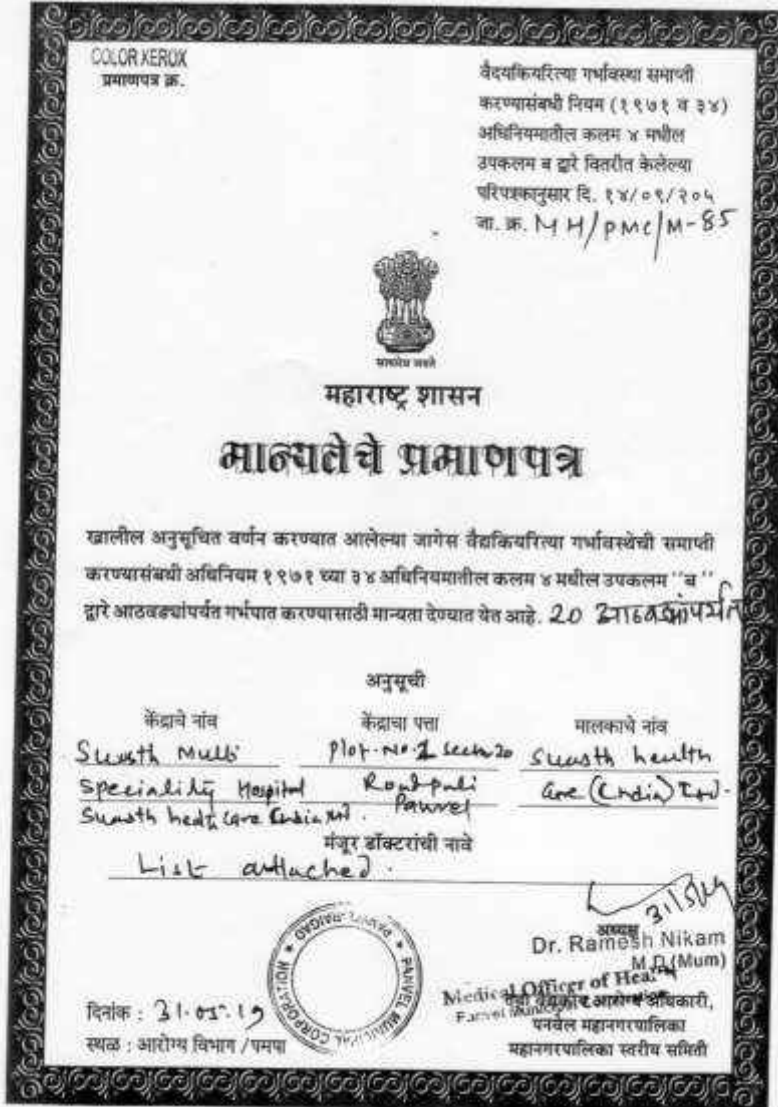 COLOR XEROX
प्रमाणपत्र क्र.
वैदयकियरित्या गर्भावस्था समाप्ती
करण्यासंबधी नियम (१९७१ व ३४)
अधिनियमातील कलम ४ मधील
उपकलम ब द्वारे वितरीत केलेल्या
परिपत्रकानुसार दि. १४/०९/२०५
जा. क्र. MH/PMC/M-85
सत्यमेव जयते
महाराष्ट्र शासन
मान्यतेचे प्रमाणपत्र
खालील अनुसूचित वर्णन करण्यात आलेल्या जागेस वैद्यकियरित्या गर्भावस्थेची समाप्ती
करण्यासंबधी अधिनियम १९७१ च्या ३४ अधिनियमातील कलम ४ मधील उपकलम "ब"
द्वारे आठवड्यांपर्यत गर्भपात करण्यासाठी मान्यता देण्यात येत आहे. 20 आठवड्यांपर्यंत
अनुसूची
केंद्राचे नांव केंद्राचा पत्ता मालकाचे नांव
Suasth Multi Plot-No.1 20 Suasth health
Speciality Hospital Roadpali Care (India) Ltd.
Suasth health Care India Panvel
मंजूर डॉक्टरांची नावे
List attached.
अध्यक्ष
Dr. Ramesh Nikam
M.D (Mum)
Medical Officer of Health
तथा वैद्यकीय आरोग्य अधिकारी,
पनवेल महानगरपालिका
महानगरपालिका स्तरीय समिती
PANVEL MUNICIPAL CORPORATION
दिनांक : 31.05.19
स्थळ : आरोग्य विभाग / पमपा